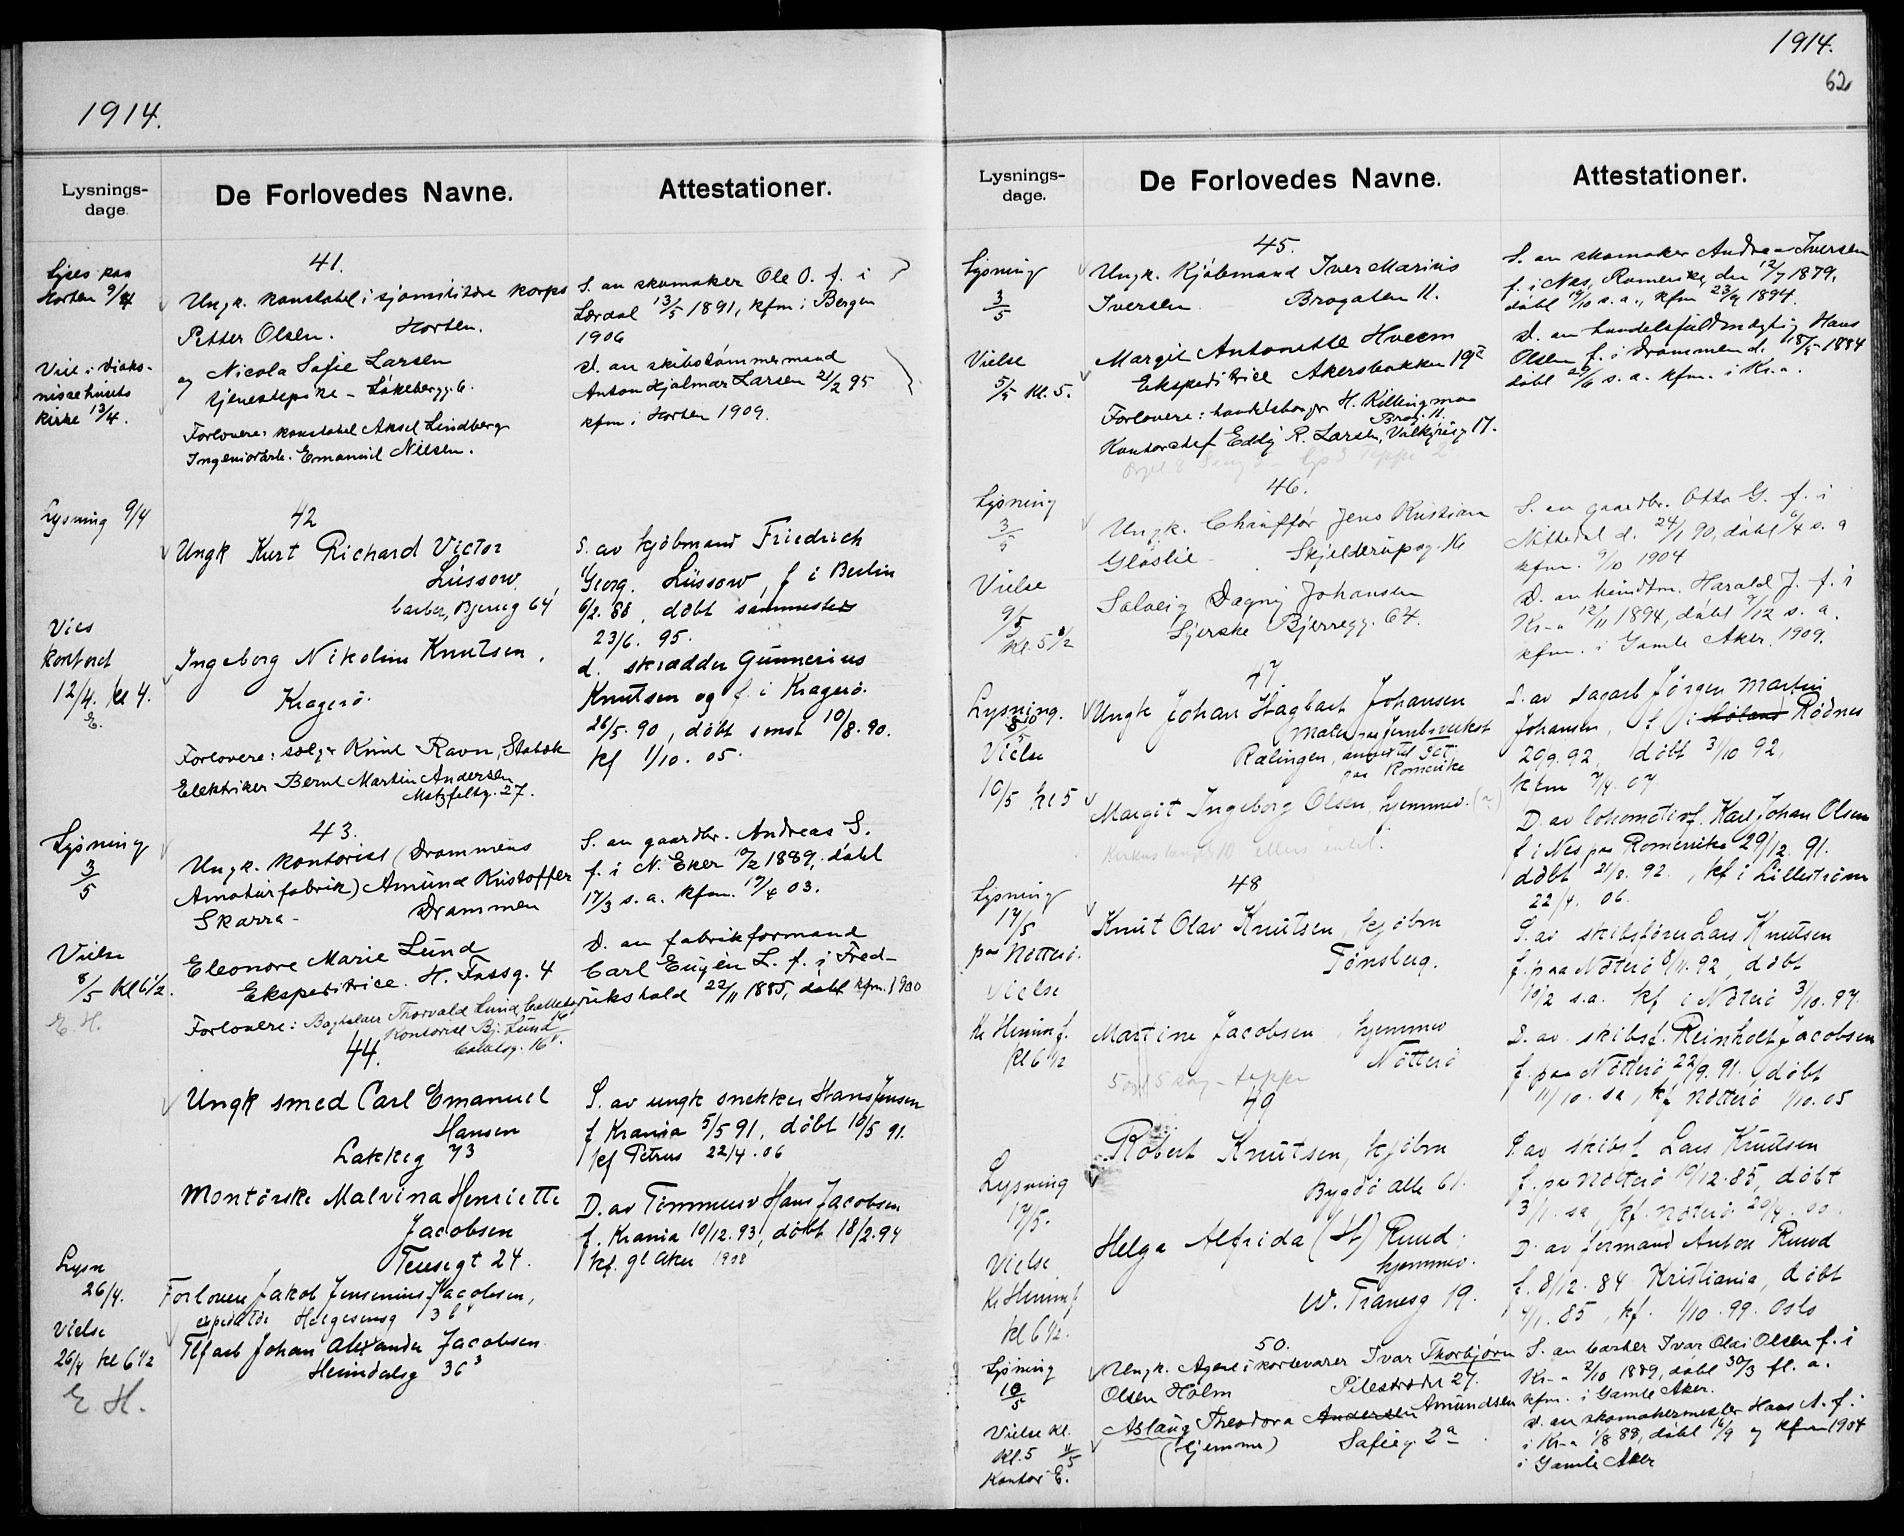 1914.
Lysnings-
dage.
De Forlovedes Navne.
Attestationer.
Lyses paa
Horten 9/4
Viet i Diako-
nissehusets
kirke 13/4.
41.
Ungk. konstabel i sjømilitære korps
Petter Olsen. Horten.
og Nicola Sofie Larsen
tjenestepike - Løkebergg. 6.
Forlovere: konstabel Aksel Lindberg
Ingeniørarb. Emanuel Nilsen.
S. av skomaker Ole O. f. i
Lærdal 13/5 1891, kfm. i Bergen
1906
D. av skibstømmermand
Anton Hjalmar Larsen 21/2 95
kfm. i Horten 1909.
Lysning 9/4
Vies
kontoret
12/4. kl 4.
E.
42
Ungk Kurt Richard Victor
Lüssow
barber, Bjerreg 64
Ingeborg Nikoline Knutsen,
Kragerø.
Forlovere: Knut Ravn, Stabæk
Elektriker Bernt Martin Andersen
Motzfeltg. 27.
S. av kjøbmand Friedrich
Georg. Lüssow, f i Berlin
6/2. 88, døbt sammesteds
23/6. 95.
d. skrædder Gunnerius
Knutsen og f. i Kragerø.
26/5. 90, døbt smst 10/8. 90.
kf 1/10. 05.
Lysning
3/5
Vielse
8/5 kl 6 1/2.
E. H.
43.
Ungk. kontorist (Drammens
Armaturfabrik) Amund Kristoffer
Skarra - Drammen
Eleonore Marie Lund
Ekspeditrice. H. Fossg. 4
Forlovere: Thorvald Lund
Kontorist Bj. Lund
S. av gaardbr. Andreas S.
f. i N. Eker 1889, døbt
17/3 s. a. kfm. 03.
D. av fabrikformand
Carl Eugèn L. f. i Fred-
rikshald 22/11 1885, døbt kfm. 1900
Lysn
26/4.
Vielse
26/4 kl 6 1/2
E. H.
44.
Ungk smed Carl Emanuel
Hansen
Lakkeg 73
Montørske Malvina Henriette
Jacobsen
Teusegt 24.
Forlovere Jakob Jensenius Jacobsen,
Helgesensg 36
Tlfarb Johan Alexander Jacobsen
Heimdalsg 36 3
S. av ungk snekker Hans Jensen
f Krania 5/5 91, døbt 10/5 91.
kf Petrus 22/4. 06
D. av Tømmerm Hans Jacobsen
f. Krania 10/12. 93, døbt 18/2. 94
kf. gl Aker 1908
1914.
62
Lysnings-
dage.
De Forlovedes Navne.
Attestationer.
Lysning
3/5
Vielse
5/5 kl. 5.
45.
Ungk. Kjøbmand Iver Marinis
Iversen Brogaten 11.
Margit Antonette Hveem
Ekspeditrice Akersbakken 19
Forlovere: H. Killingmo
Brog. 11.
Kontorchef Eddy R. Larsen, Valkyrieg 17.
S. av skomaker Andreas Iversen
f. i Nes, Romerike, den 12/7 1879,
døbt 19/10 s. a., kfm 23/9 1894.
D. av handelsfuldmægtig Hans
Olsen f. i Drammen d. 18/5 1884
døbt s. a. kfm. i Kr.a.
Lysning
3/5
Vielse
9/5
kl. 5 1/2
46.
Ungk. Chauffør Jens Kristian
Gløslie - Skjelderupsg. 16
Solveig Dagny Johansen
Syerske Bjerregg. 64.
S. av gaardbr. Otto G. f. i
Nittedal d. 24/1 90, døbt s. a
kfm. 9/10 1904
D. av Harald J. f. i
Kr-a 12/11 1894, døbt /12 s. a.
kfm. i Gamle Aker. 1909.
Lysning.
Vielse
10/5 kl 5
47
Ungk Johan Hagbart Johansen
Rælingen,
paa Romerike
Margit Ingeborg Olsen, hjemmev.
S. av sagarb Jørgen Martin
Johansen, f i Høland Rødnes
29/9. 92, døbt 31/10 92,
kfm 7/4. 07.
D. av lokomotivf. Karl Johan Olsen
f i Nes paa Romerike 29/12. 91.
døbt 21/2. 92., kf i Lillestrøm
22/4. 06.
Lysning
17/5
paa Nøtterø.
Vielse
kl 6 1/2
48
Knut Olav Knutsen, kjøbm
Tønsberg.
Martine Jacobsen, hjemmev
Nøtterø
S. av skibsfører Lars Knutsen
f. paa Nøtterø 92, døbt
s.a. kf i Nøterø 3/10. 97.
D. av skibsf. Reinholt Jacobsen
f. paa Nøtterø 22/9. 91, døbt
11/10. sa, kf Nøtterø 1/10. 05
Lysning
17/5.
Vielse
kl 6 1/2.
49
Robert Knutsen, kjøbm
Bygdø alle 61.
Helga Alfrida (H) Ruud.
hjemmev.
W. Tranesg 19.
S. av skibsf Lars Knutsen
f. paa Nøtterø 19/12. 85, døbt
3/1. sa, kf. Nøterø
D. av formand Anton Ruud
f. 8/12. 84 Kristiania, døbt
4/1. 85, kf. 1/10. 99. Oslo
Lysning
10/5
Vielse kl.
kl. 5 11/5
Kontor E.
50.
Ungk. Agent i kortevarer Ivar Thorbjørn
Olsen Holm Pilestrædet 27.
Aslaug Theodora Andersen Amundsen
(hjemme) Sofieg. 2a
S. av Ivar Olai Olsen f. i
Kr-a 2/10 1889, døbt 30/3 fl. a.
kfm. i Gamle Aker.
D. av skomakermester Hans A. f. i
i Kr-a 1/8 88, døbt 16/9 og kfm 1904
i Gamle Aker